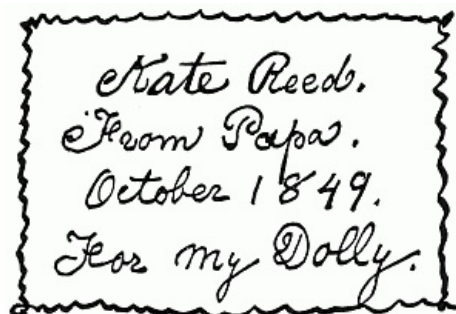 Kate Reed.
From Papa.
October 1849.
For my Dolly.